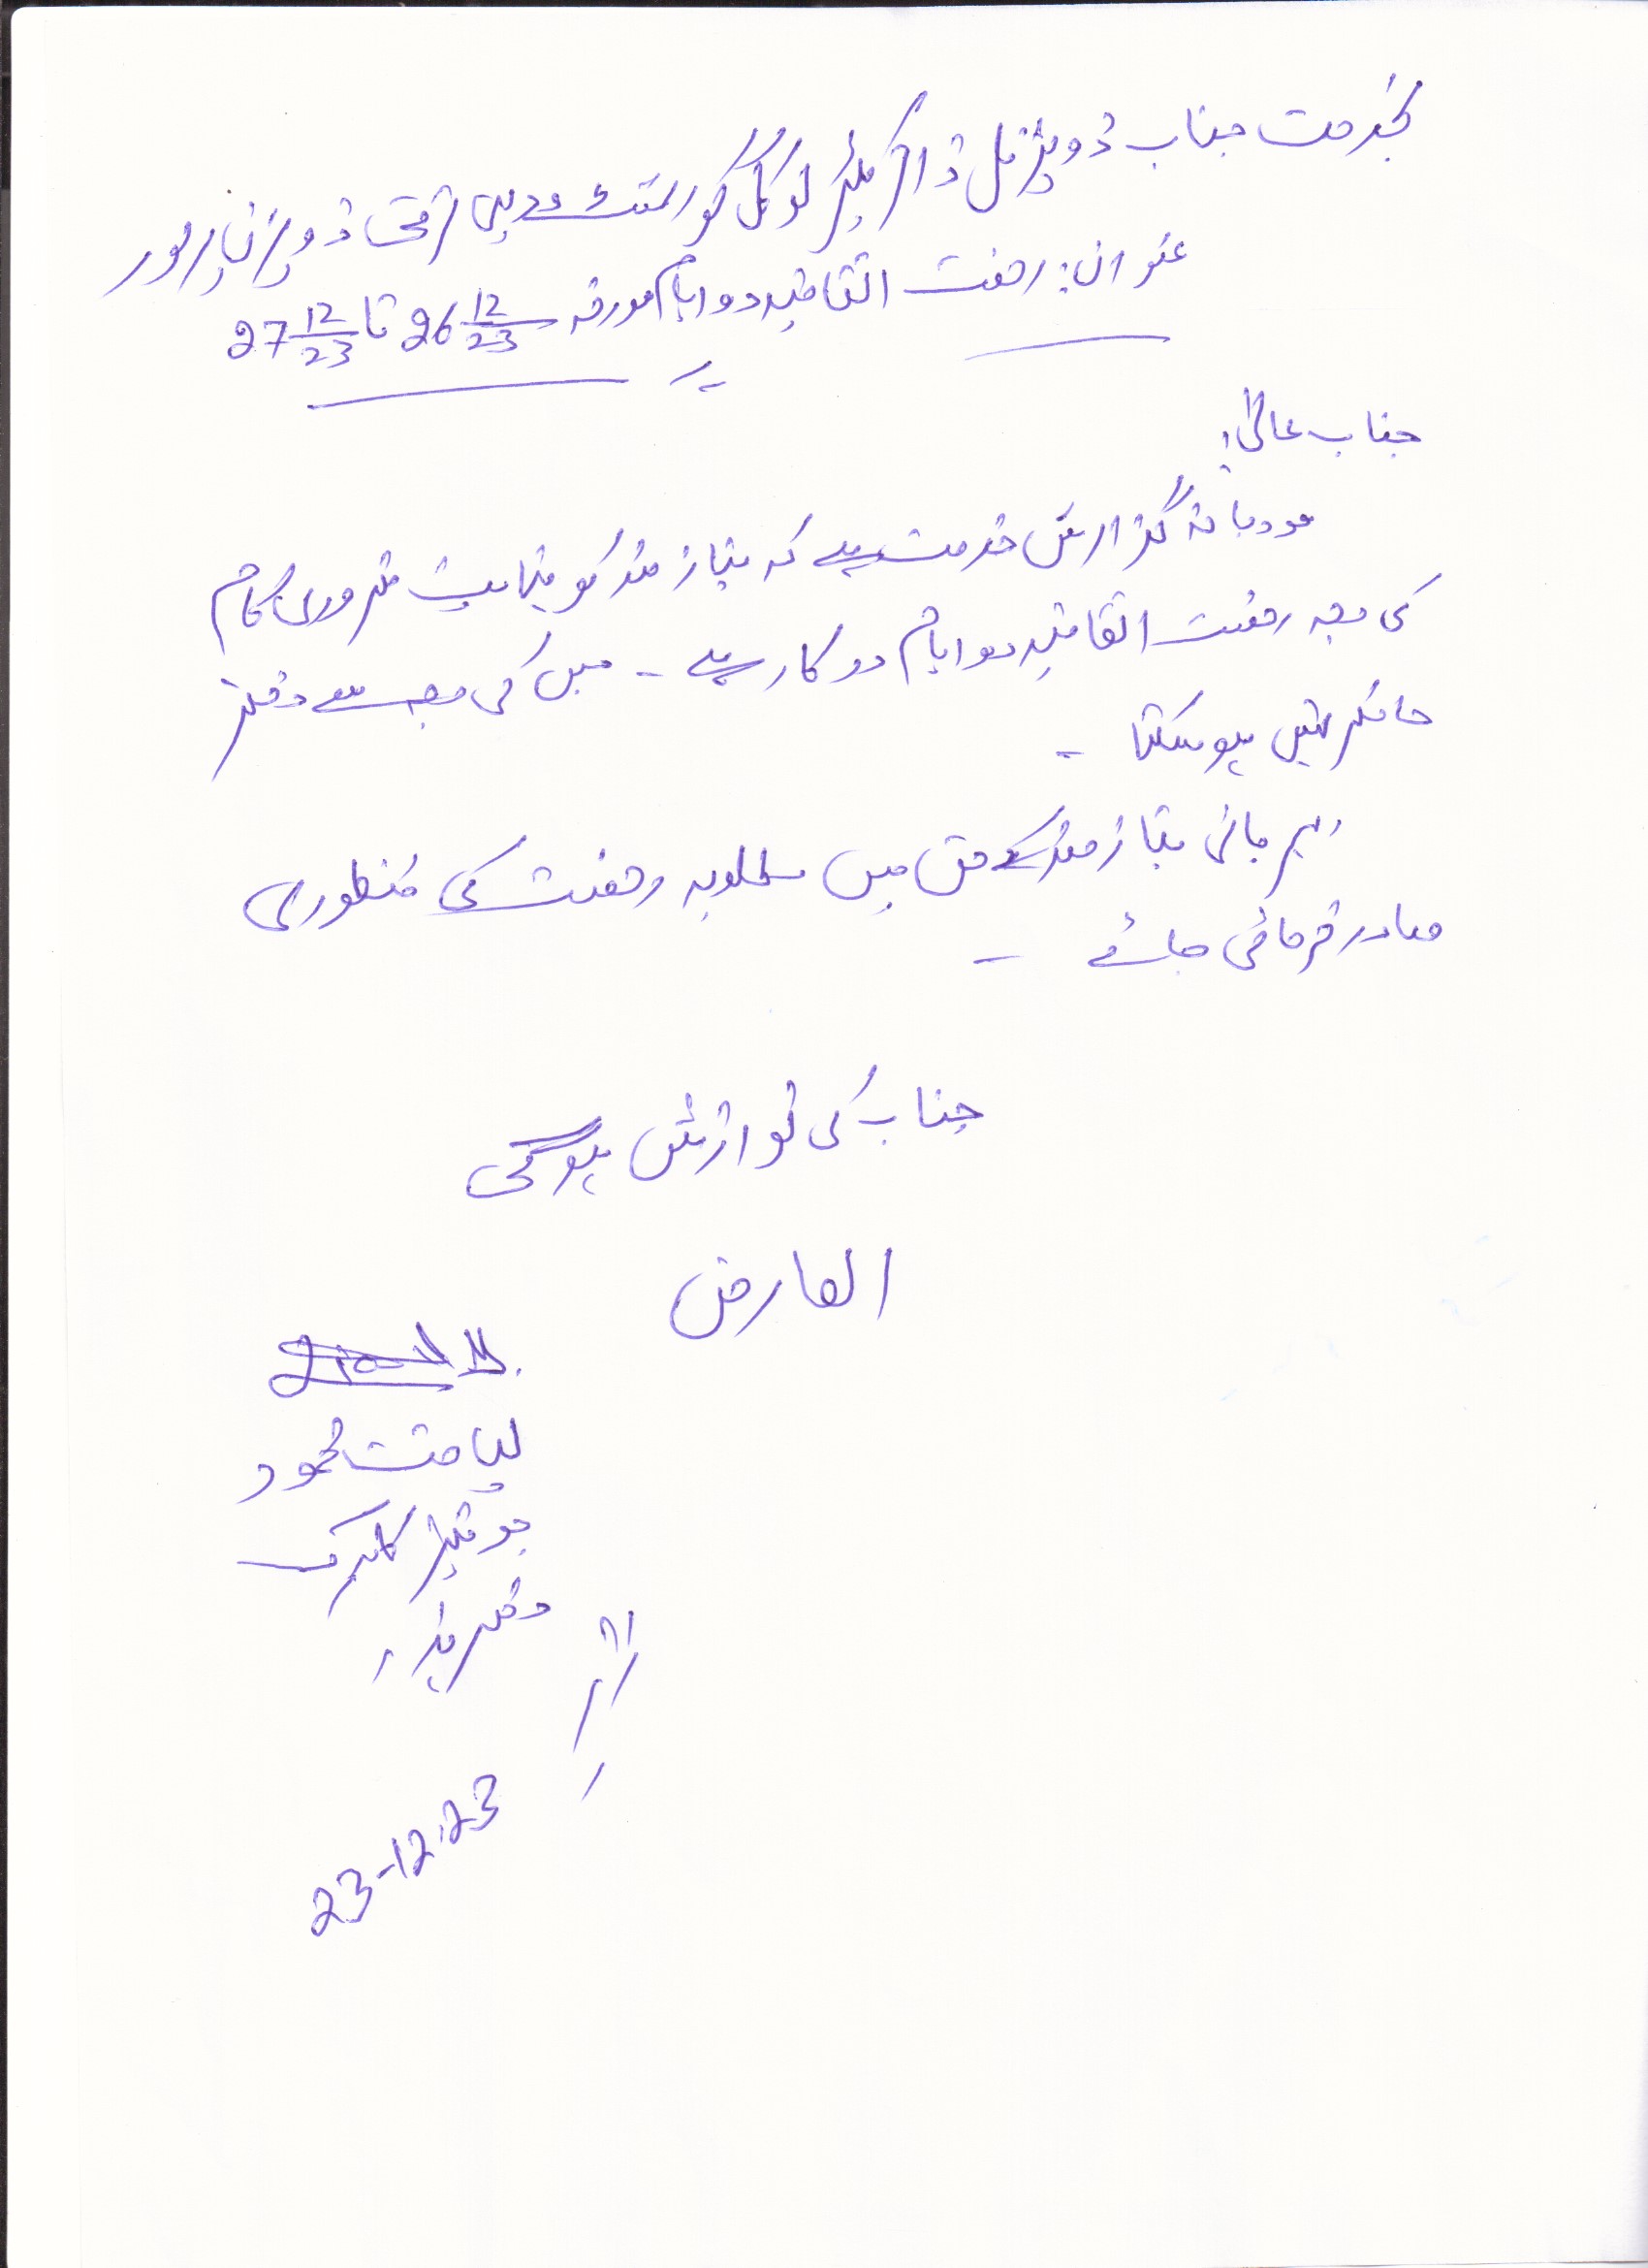 بخدمت جناب ڈویژنل ڈائریکٹر لوکل گورنمنٹ و دیہی ترقی ڈویژن
عنوان: رخصت اتفاقیہ دو ایام مورخہ 26 12/23 تا 27 12/23
جناب عالی!
مودبانہ گزارش خدمت ہے کہ نیاز مند کو نہایت ضروری کام
کی وجہ رخصت اتفاقیہ دو ایام درکار ہے ۔ جس کی وجہ سے دفتر
حاضر نہیں ہو سکتا ۔
مہربانی نیاز مند کے حق میں مطلوبہ رخصت کی منظوری
صادر فرمائی جائے ۔
جناب کی نوازش ہوگی
العارض
لیاقت محمود
جونیئر کلرک
دفتر ہذا
23-12-23